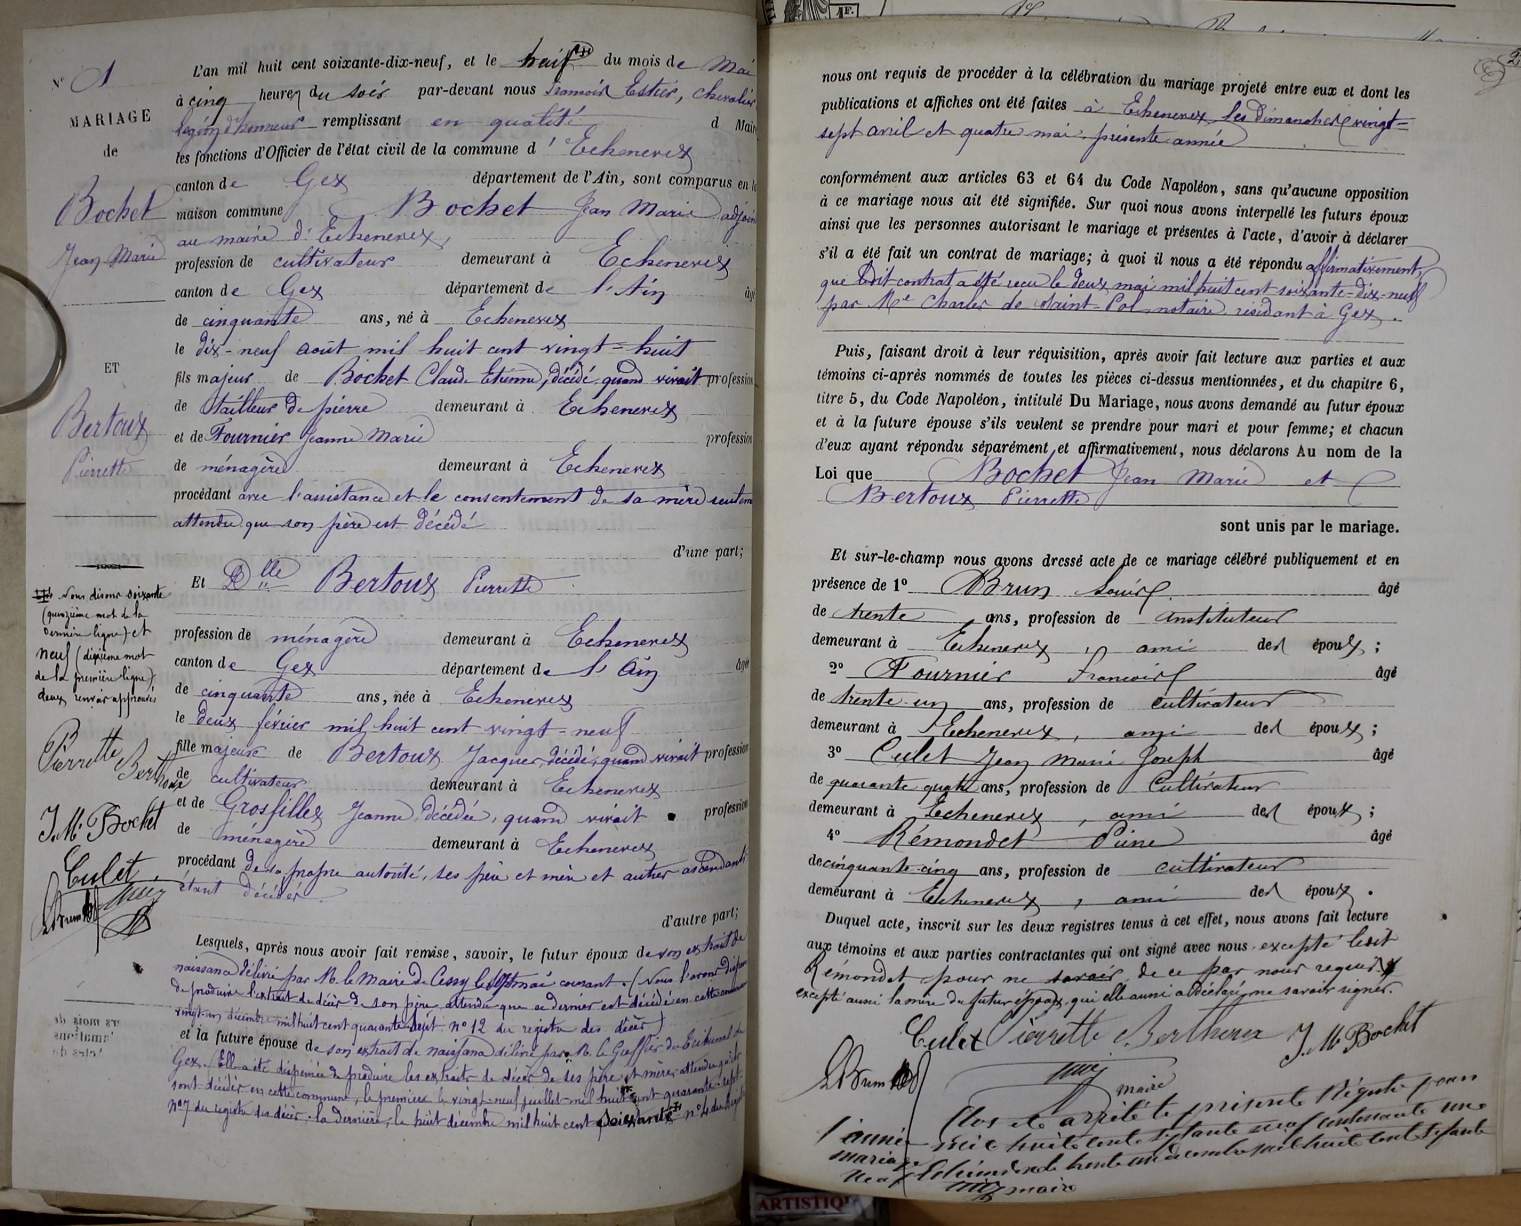 N° 1
MARIAGE
de
Bochet
Jean Marie
ET
Bertoux
Pierrette
Nous disons soixante
(quinzième mot de la
dernière ligne) et
neuf (dixième mot
de la première ligne)
deux renvois approuvés
Pierrette Berthoux
J. M. Bochet
Culet
L. Brun
L'an mil huit cent soixante-dix-neuf, et le huit du mois de Mai
à cinq heures du soir par-devant nous François Estier, chevalier
légion d'honneur remplissant en qualité d Maire
les fonctions d'Officier de l'état civil de la commune d' Echenevex
canton de Gex département de l'Ain, sont comparus en la
maison commune Bochet Jean Marie adjoint
au maire d'Echenevex,
profession de cultivateur demeurant à Echenevex
canton de Gex département de l'Ain âgé
de cinquante ans, né à Echenevex
le dix-neuf août mil huit cent vingt=huit
fils majeur de Bochet Claude Etienne, décédé, quand vivait profession
de tailleur de pierre demeurant à Echenevex
et de Fournier Jeanne Marie profession
de ménagère demeurant à Echenevex
procédant avec l'assistance et le consentement de sa mère seulement
attendu que son père est décédé
d'une part;
Et Dlle Bertoux Pierrette
profession de ménagère demeurant à Echenevex
canton de Gex département de l'Ain âgée
de cinquante ans, née à Echenevex
le deux février mil huit cent vingt=neuf
fille majeure de Bertoux Jacques, décédé, quand vivait profession
de cultivateur demeurant à Echenevex
et de Grosfillex Jeanne, décédée, quand vivait profession
de ménagère demeurant à Echenevex
procédant de sa propre autorité, ses père et mère et autres ascendants
étant décédés.
d'autre part;
Lesquels, après nous avoir fait remise, savoir, le futur époux de son extrait de
naissance délivré par M. le Maire de Cessy le sept mai courant. (Nous l'avons dispensé
de produire l'extrait de décès de son père attendu que ce dernier est décédé en cette commune
vingt-un décembre mil huit cent quarante-sept. n° 12 du registre des décès)
et la future épouse de son extrait de naissance délivré par M. le Greffier du Tribunal de
Gex. Elle a été dispensée de produire les extraits de décès de ses père et mère, attendu qu'ils
sont décédés en cette commune, le premier le vingt-neuf juillet mil huit cent quarante-sept
n° 7 du registre des décès, la dernière, le huit décembre mil huit cent soixante n° 4 du registre
nous ont requis de procéder à la célébration du mariage projeté entre eux et dont les
publications et affiches ont été faites à Echenevex les dimanches vingt=
sept avril et quatre mai présente année
conformément aux articles 63 et 64 du Code Napoléon, sans qu'aucune opposition
à ce mariage nous ait été signifiée. Sur quoi nous avons interpellé les futurs époux
ainsi que les personnes autorisant le mariage et présentes à l'acte, d'avoir à déclarer
s'il a été fait un contrat de mariage; à quoi il nous a été répondu affirmativement,
que ledit contrat a été reçu le deux mai mil huit cent soixante-dix-neuf
par Me Charles de Saint-Pol notaire résidant à Gex.
Puis, faisant droit à leur réquisition, après avoir fait lecture aux parties et aux
témoins ci-après nommés de toutes les pièces ci-dessus mentionnées, et du chapitre 6,
titre 5, du Code Napoléon, intitulé Du Mariage, nous avons demandé au futur époux
et à la future épouse s'ils veulent se prendre pour mari et pour femme; et chacun
d'eux ayant répondu séparément et affirmativement, nous déclarons Au nom de la
Loi que Bochet Jean Marie et
Bertoux Pierrette
sont unis par le mariage.
Et sur-le-champ nous avons dressé acte de ce mariage célébré publiquement et en
présence de 1° Brun Louis âgé
de trente ans, profession de instituteur
demeurant à Echenevex, ami des époux;
2° Fournier François âgé
de trente-un ans, profession de cultivateur
demeurant à Echenevex, ami des époux;
3° Culet Jean Marie Joseph âgé
de quarante quatre ans, profession de cultivateur
demeurant à Echenevex, ami des époux;
4° Rémondet Pierre âgé
de cinquante-cinq ans, profession de cultivateur
demeurant à Echenevex, ami des époux.
Duquel acte, inscrit sur les deux registres tenus à cet effet, nous avons fait lecture
aux témoins et aux parties contractantes qui ont signé avec nous excepté ledit
Rémondet pour ne savoir, de ce par nous requis
excepté aussi la mère du futur époux, qui elle aussi a déclaré ne savoir signer.
Culet Pierrette Berthoux J. M. Bochet
L. Brun
maire
Clos et arrêté le présent Régistre pour
l'année mil huit cent septante neuf contenant un
mariage Echenevex le trente un décembre mil huit cent septante
neuf
maire
ARTISTIQ